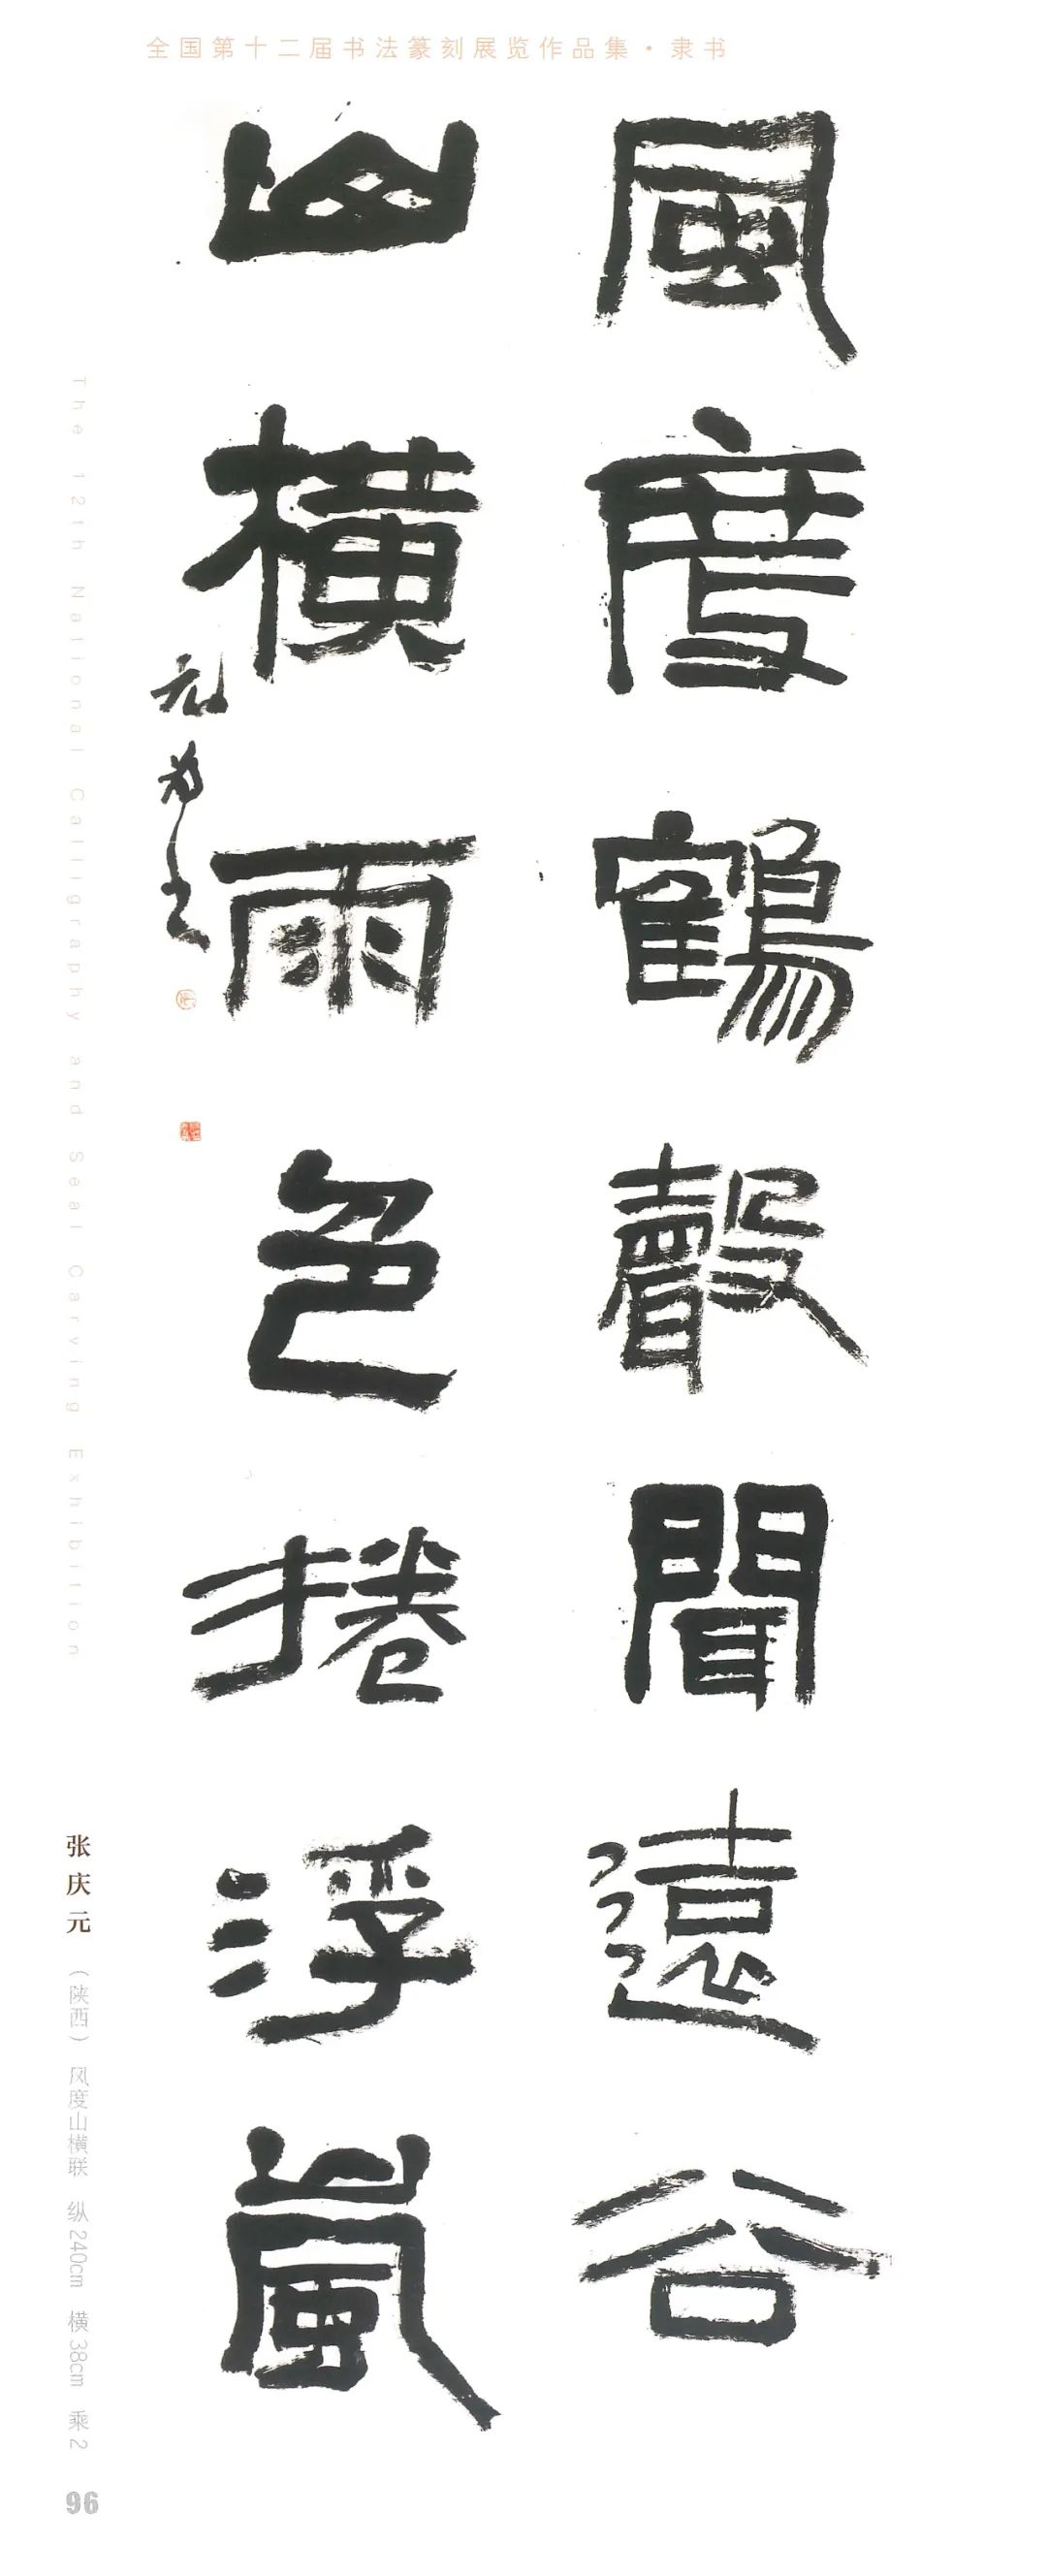 全国第十二届书法篆刻展览作品集·隶书
風度鶴聲聞遠谷
山橫雨色捲浮嵐
The 12th National Calligraphy and Seal Carving Exhibition
张庆元 （陕西） 风度山横联 纵240cm 横38cm 乘2
96